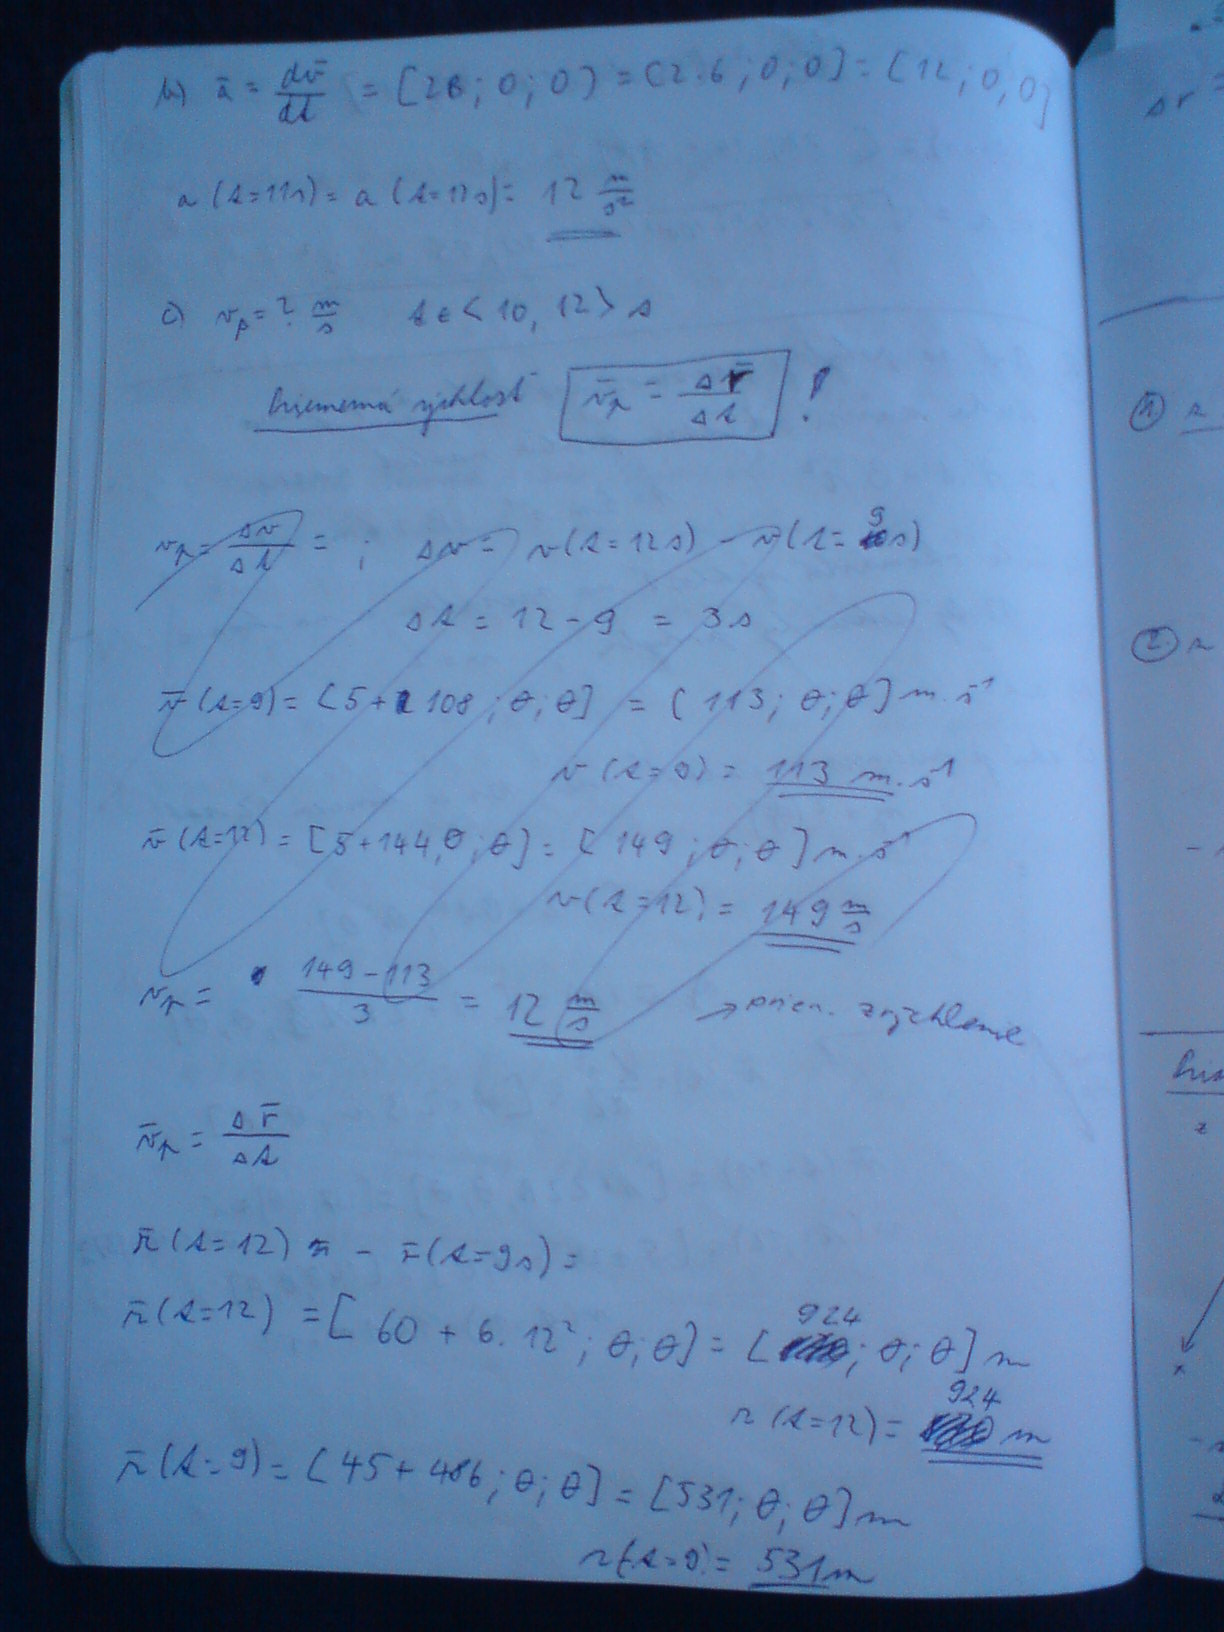 b) a̅ = dv̅/dt = [2B; 0; 0] = [2.6; 0; 0] = [12; 0, 0]
a (t=11s) = a (t=12s) = 12 m/s²
c) vₚ = ? m/s t ∈ < 10, 12 > s
Priemerná rýchlosť v̅ₚ = Δr̅/Δt !
vₚ = Δv/Δt = ; Δv = v(t=12s) - v(t=9s)
Δt = 12 - 9 = 3s
v̅ (t=9) = [5+108; 0; 0] = [113; 0; 0] m.s⁻¹
v (t=9) = 113 m.s⁻¹
v̅ (t=12) = [5+144, 0; 0] = [149; 0; 0] m.s⁻¹
v(t=12) = 149 m/s
vₚ = (149-113)/3 = 12 m/s → prien. zrýchlenie
v̅ₚ = Δr̅/Δt
r̅ (t=12) - r̅ (t=9s) =
r̅ (t=12) = [60 + 6.12²; 0; 0] = [924; 0; 0] m
r (t=12) = 924 m
r̅ (t=9) = [45+486; 0; 0] = [531; 0; 0] m
r (t=9) = 531m
Δr
①
②